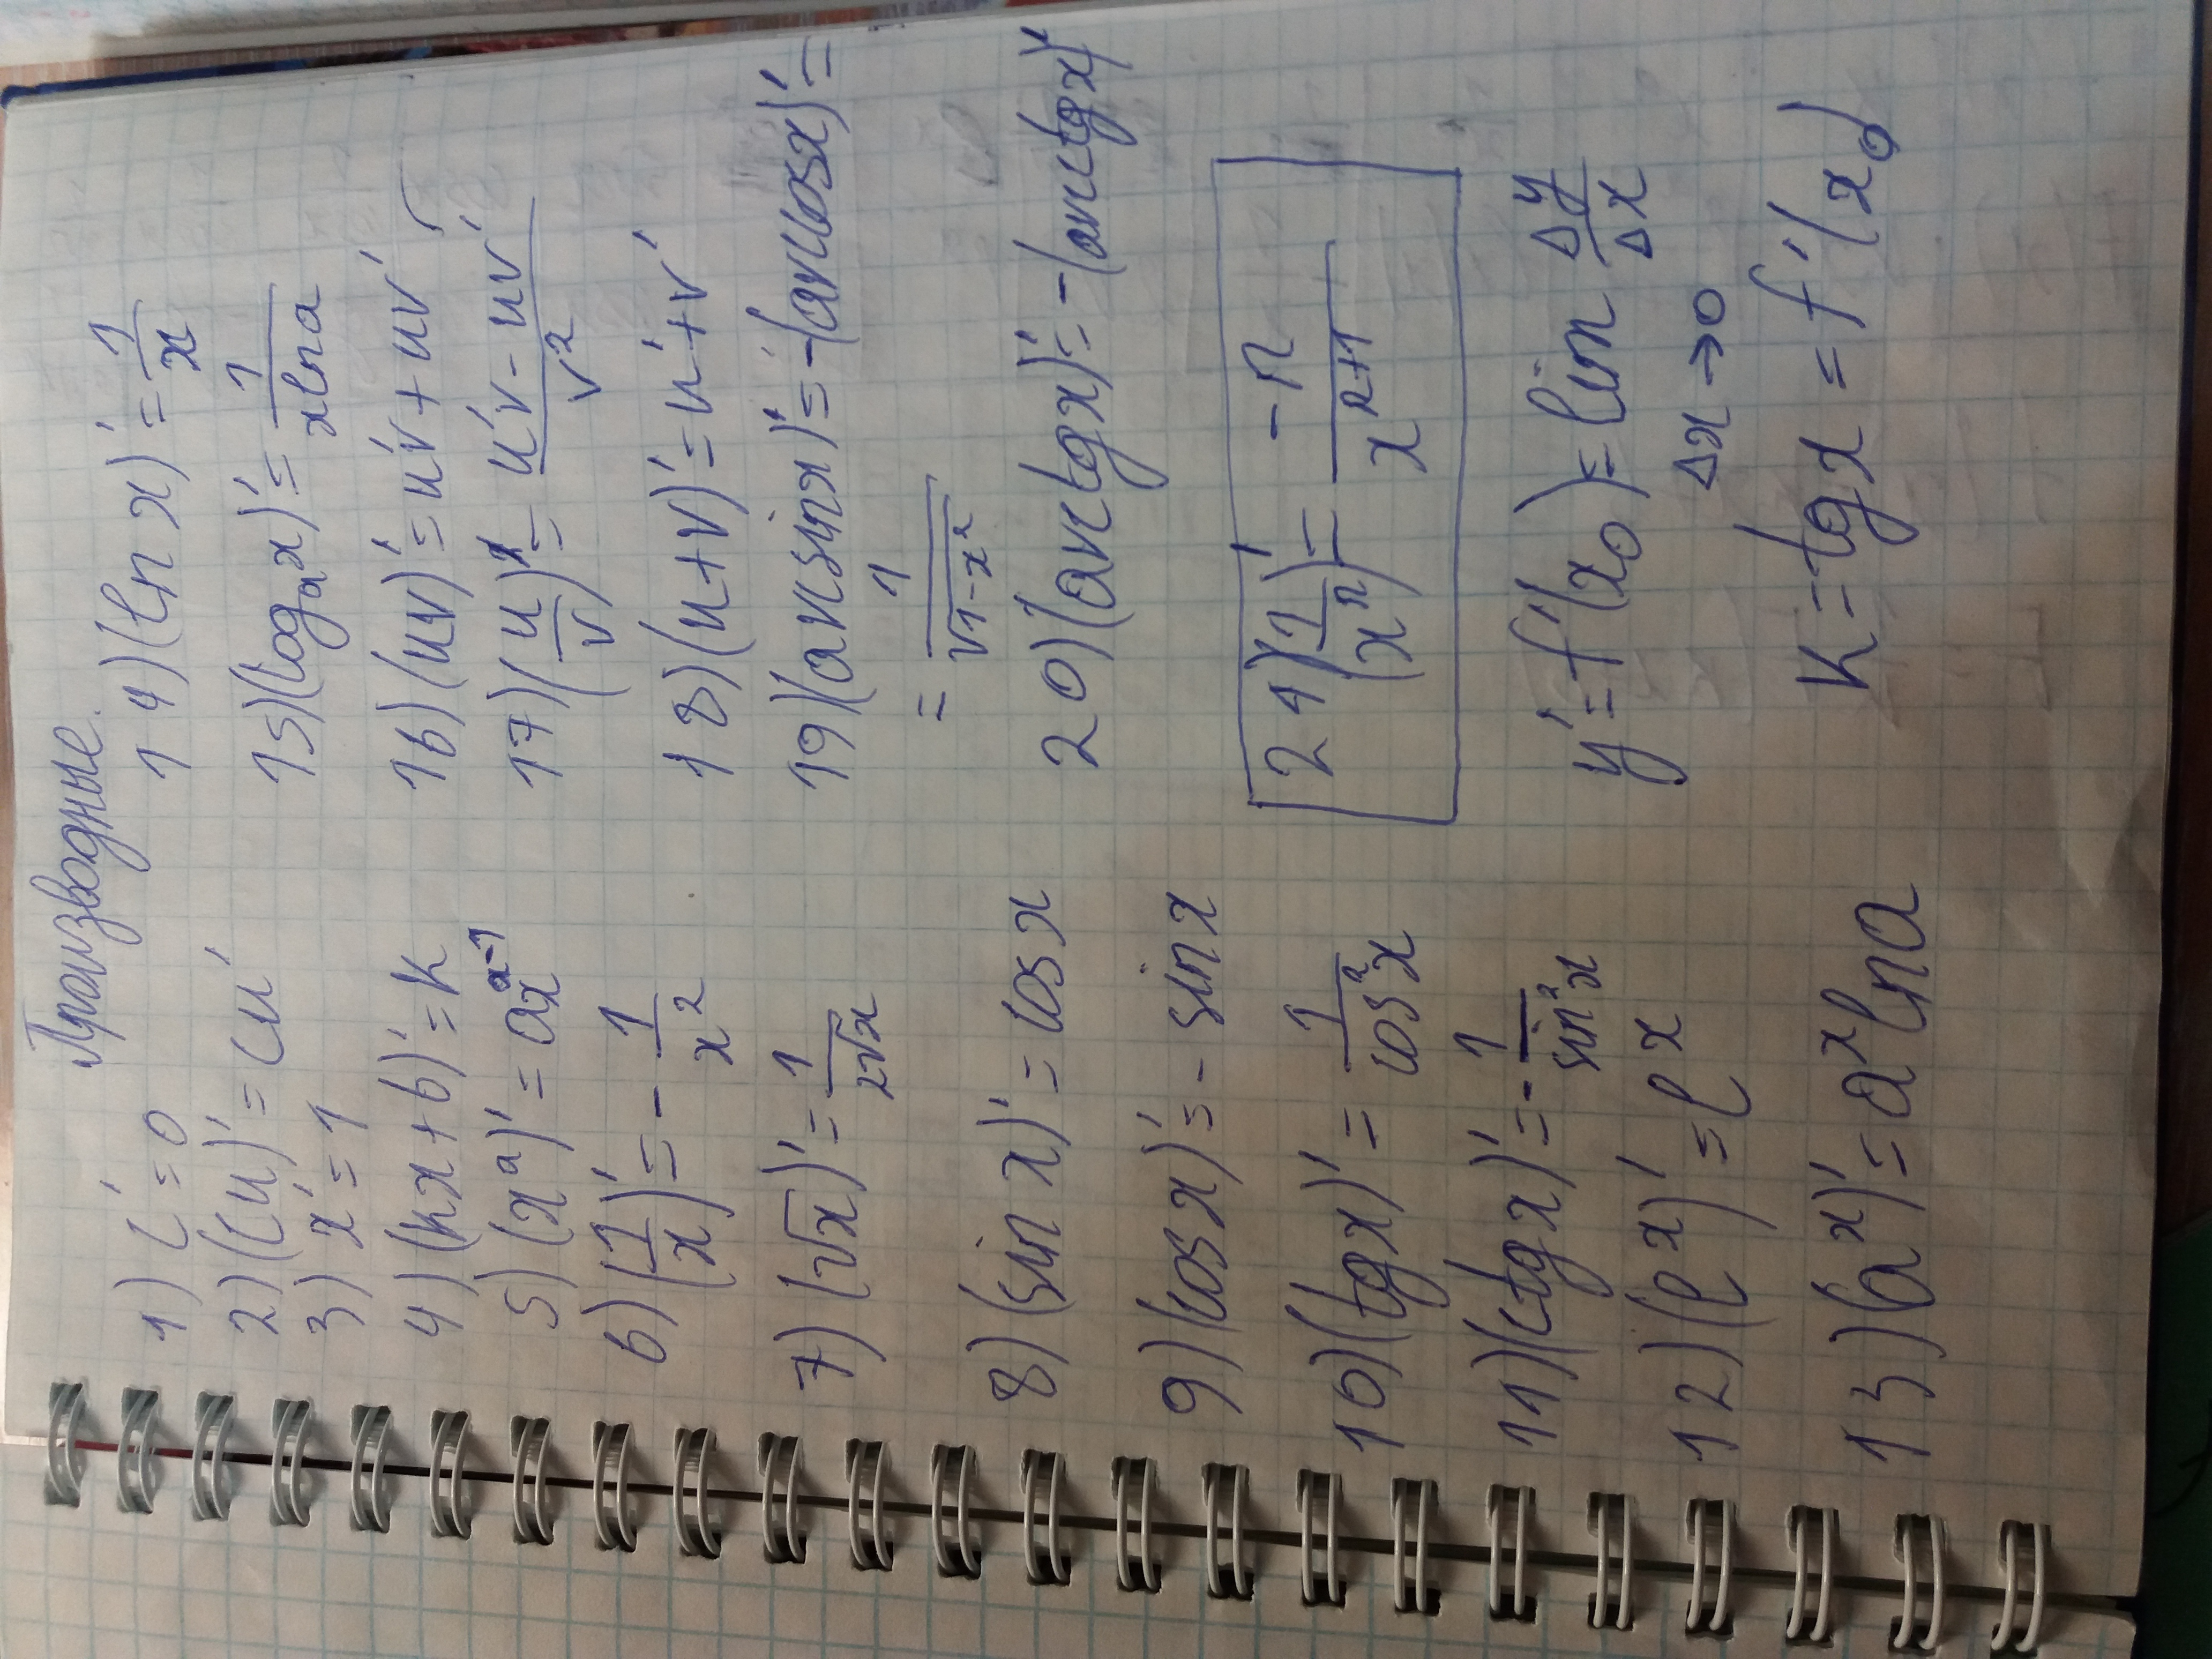 Производные.
1) c' = 0
2) (cu)' = cu'
3) x' = 1
4) (kx + b)' = k
5) (xᵃ)' = axᵃ⁻¹
6) (1/x)' = - 1/x²
7) (√x)' = 1/2√x
8) (sin x)' = cos x
9) (cos x)' = - sin x
10) (tg x)' = 1/cos²x
11) (ctg x)' = - 1/sin²x
12) (eˣ)' = eˣ
13) (aˣ)' = aˣ ln a
14) (ln x)' = 1/x
15) (logₐx)' = 1/x ln a
16) (uv)' = u'v + uv'
17) (u/v)' = u'v - uv'/v²
18) (u + v)' = u' + v'
19) (arcsin x)' = -(arccos x)' =
= 1/√1-x²
20) (arctg x)' = -(arcctg x)'
21) (1/xⁿ)' = -n/xⁿ⁺¹
y' = f'(x₀) = lim Δy/Δx
Δx → 0
k = tg x = f'(x₀)